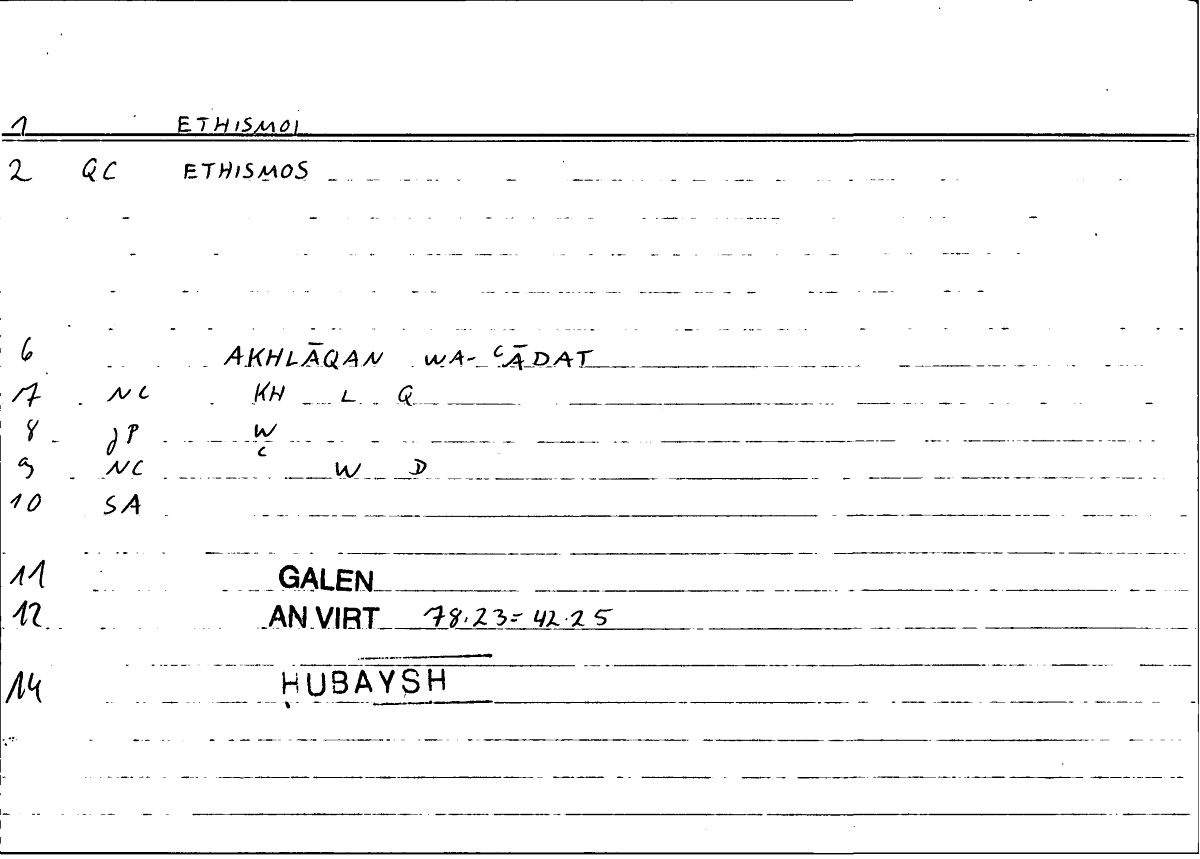 1 ETHISMOI
2 QC ETHISMOS
6 AKHLĀQAN WA- ᶜĀDAT
7 NC KH L Q
8 JP W
9 NC ᶜ W D
10 SA
11 GALEN
12 AN VIRT 78.23=42.25
14 ḤUBAYSH